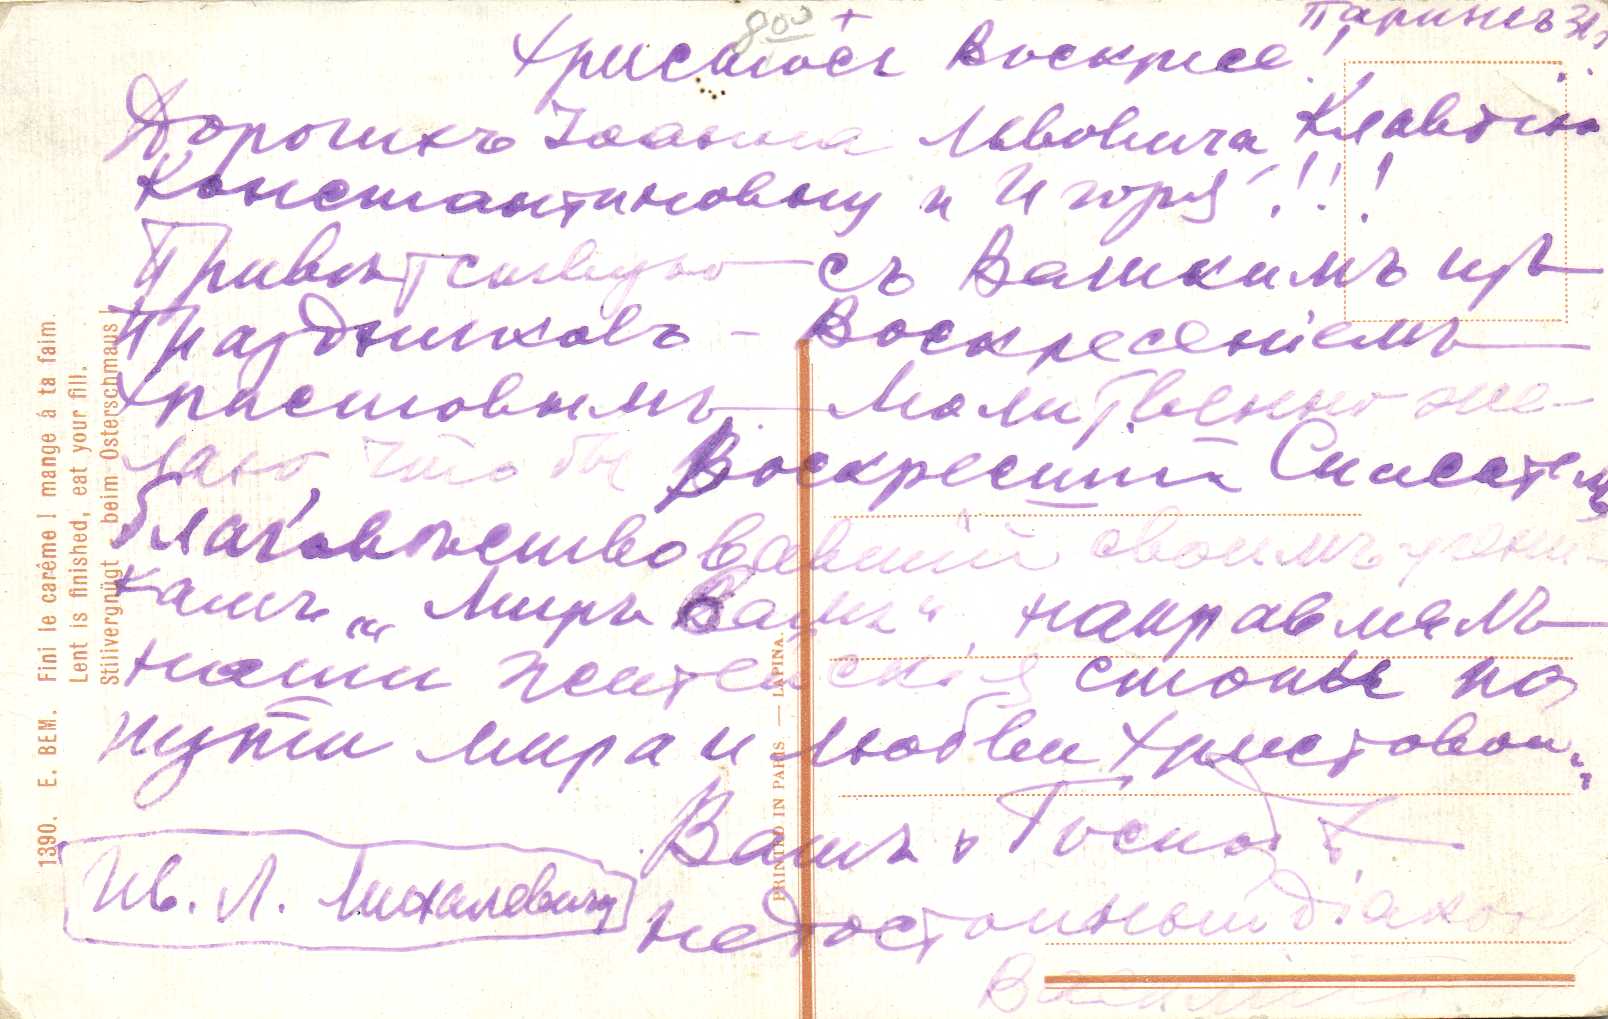 800
Парижъ 31
Христосъ Воскресе!
Дорогихъ Іоанна Львовича Клавтію
Константиновну и Игоря!!!
Привѣтствую съ Великимъ изъ
Праздниковъ – Воскресеніемъ
Христовымъ Молитвенно же-
лаю, что бы Воскресшій Спаситель
благовѣствовавшій своимъ учени-
камъ „Миръ Вамъ“, направлялъ
наши житейскія стопы по
пути мира и любви Христовой.
Вашъ о Господѣ
недостойный діаконъ
Василій
Ив. Л. Михалевичу
1390. E. BEM. Fini le carême! mange á ta faim.
Lent is finished, eat your fill.
Stillvergnügt beim Osterschmaus!
PRINTED IN PARIS — LAPINA.